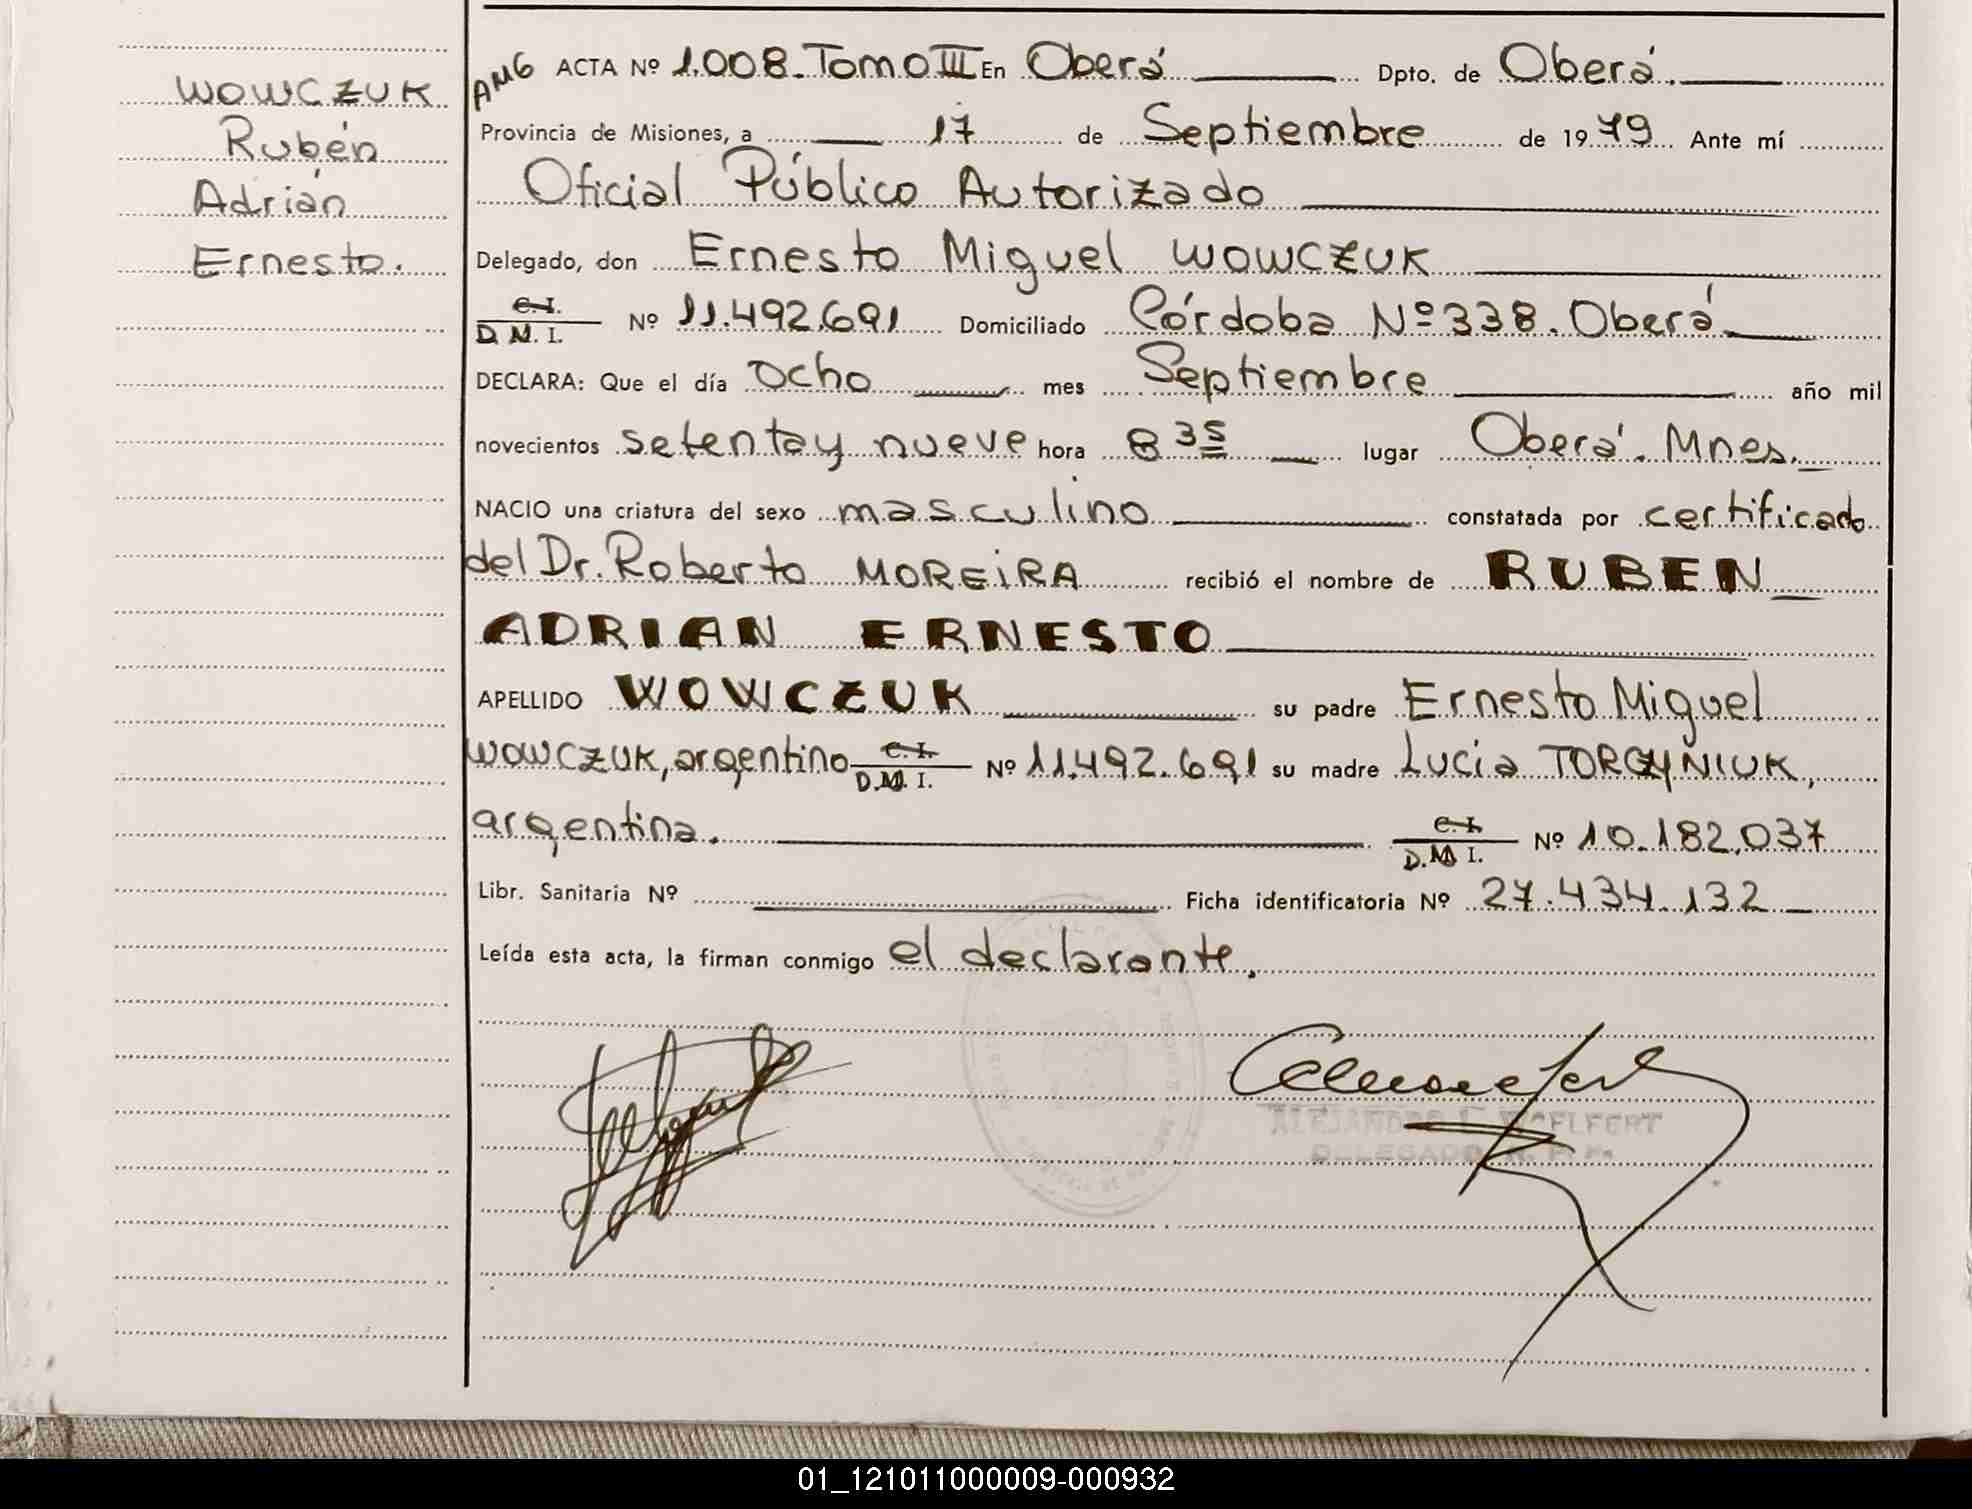 WOWCZUK
Rubén
Adrián
Ernesto.
AMG ACTA Nº 1.008. Tomo III En Oberá Dpto. de Oberá.
Provincia de Misiones, a 17 de Septiembre de 1979 Ante mí
Oficial Público Autorizado
Delegado, don Ernesto Miguel WOWCZUK
C.I. D.M.I. Nº 11.492.691 Domiciliado Córdoba Nº 338. Oberá
DECLARA: Que el día ocho mes Septiembre año mil
novecientos setenta y nueve hora 8 35 lugar Oberá. Mnes.
NACIO una criatura del sexo masculino constatada por certificado
del Dr. Roberto MOREIRA recibió el nombre de RUBEN
ADRIAN ERNESTO
APELLIDO WOWCZUK su padre Ernesto Miguel
WOWCZUK, argentino C.I. D.M.I. Nº 11.492.691 su madre Lucia TORCZYNIUK,
argentina. C.I. D.M.I. Nº 10.182.037
Libr. Sanitaria Nº Ficha identificatoria Nº 27.434.132
Leída esta acta, la firman conmigo el declarante.
DELEGADO
01_121011000009-000932